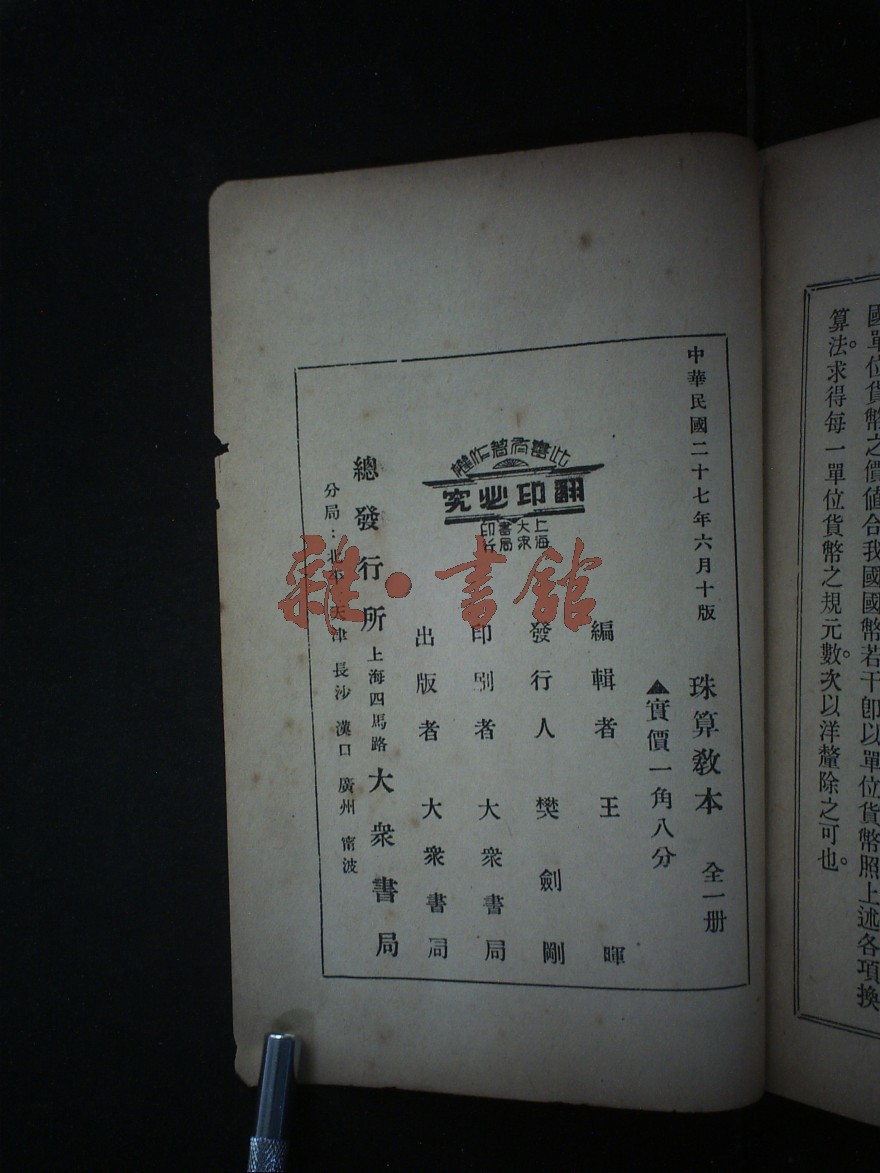 國單位貨幣之價值合我國國幣若干卽以單位貨幣照上述各項換
算法。求得每一單位貨幣之規元數。次以洋釐除之可也。
中華民國二十七年六月十版
珠算教本 全一册
▲實價一角八分
編輯者 王暉
發行人 樊劍剛
印刷者 大衆書局
出版者 大衆書局
總發行所 上海四馬路 大衆書局
分局：北平 天津 長沙 漢口 廣州 甯波
此書有著作權
翻印必究
上海
大衆
書局
印行
雜·書館